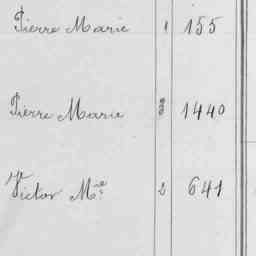 Pierre Marie 1 155
Pierre Marie 1440
Victor Mie 2 641